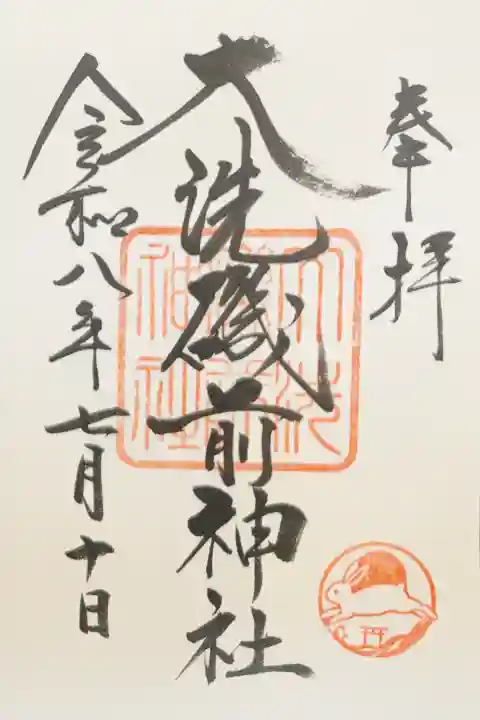 奉拝
大洗磯前神社
令和八年七月十日
大洗磯前神社